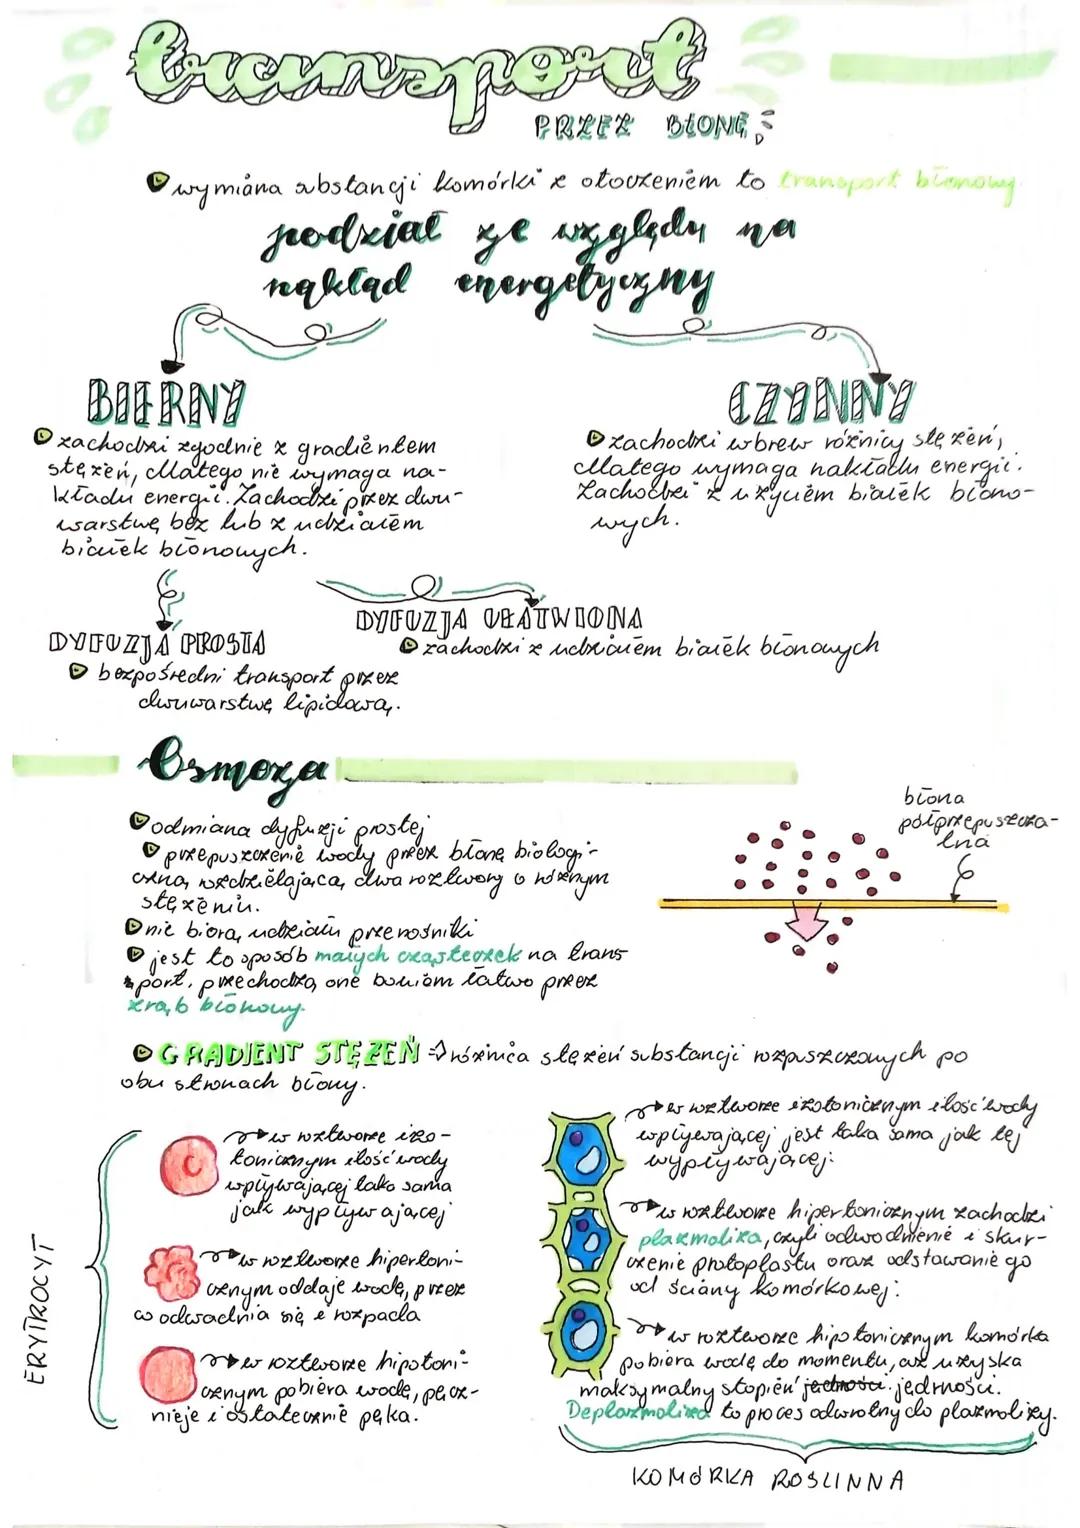 transport
PRZEZ BŁONĘ
wymiana substancji komórki z otoczeniem to transport błonowy.
podział ze względu na
nakład energetyczny
BIERNY
zachodzi zgodnie z gradientem
stężeń, dlatego nie wymaga na-
kładu energii. Zachodzi przez dwu-
warstwę bez lub z udziałem
białek błonowych.
CZYNNY
zachodzi wbrew różnicy stężeń,
dlatego wymaga nakładu energii.
Zachodzi z użyciem białek błono-
wych.
DYFUZJA PROSTA
bezpośredni transport przez
dwuwarstwę lipidową.
DYFUZJA UŁATWIONA
zachodzi z udziałem białek błonowych
Osmoza
odmiana dyfuzji prostej
przepuszczenie wody przez błonę biologi-
czną wzdzielającą dwa roztwory o różnym
stężeniu.
nie biorą udziału przenośniki
jest to sposób małych cząsteczek na trans-
port, przechodzą one bowiem łatwo przez
zrąb błonowy.
błona
półprzepuszcza-
lna
GRADIENT STĘŻEŃ => różnica stężeń substancji rozpuszczonych po
obu stronach błony.
ERYTROCYT
w roztworze izo-
tonicznym ilość wody
wpływającej taka sama
jak wypływającej
w roztworze hipertoni-
cznym oddaje wodę, przez
co odwadnia się i rozpada
w roztworze hipotoni-
cznym pobiera wodę, pęcz-
nieje i ostatecznie pęka.
w roztworze izotonicznym ilość wody
wpływającej jest taka sama jak tej
wypływającej.
w roztworze hipertonicznym zachodzi
plazmoliza, czyli odwodnienie i skur-
czenie protoplastu oraz odstawanie go
od ściany komórkowej.
w roztworze hipotonicznym komórka
pobiera wodę do momentu, aż uzyska
maksymalny stopień jędrności.
Deplazmoliza to proces odwrotny do plazmolizy.
KOMÓRKA ROSLINNA